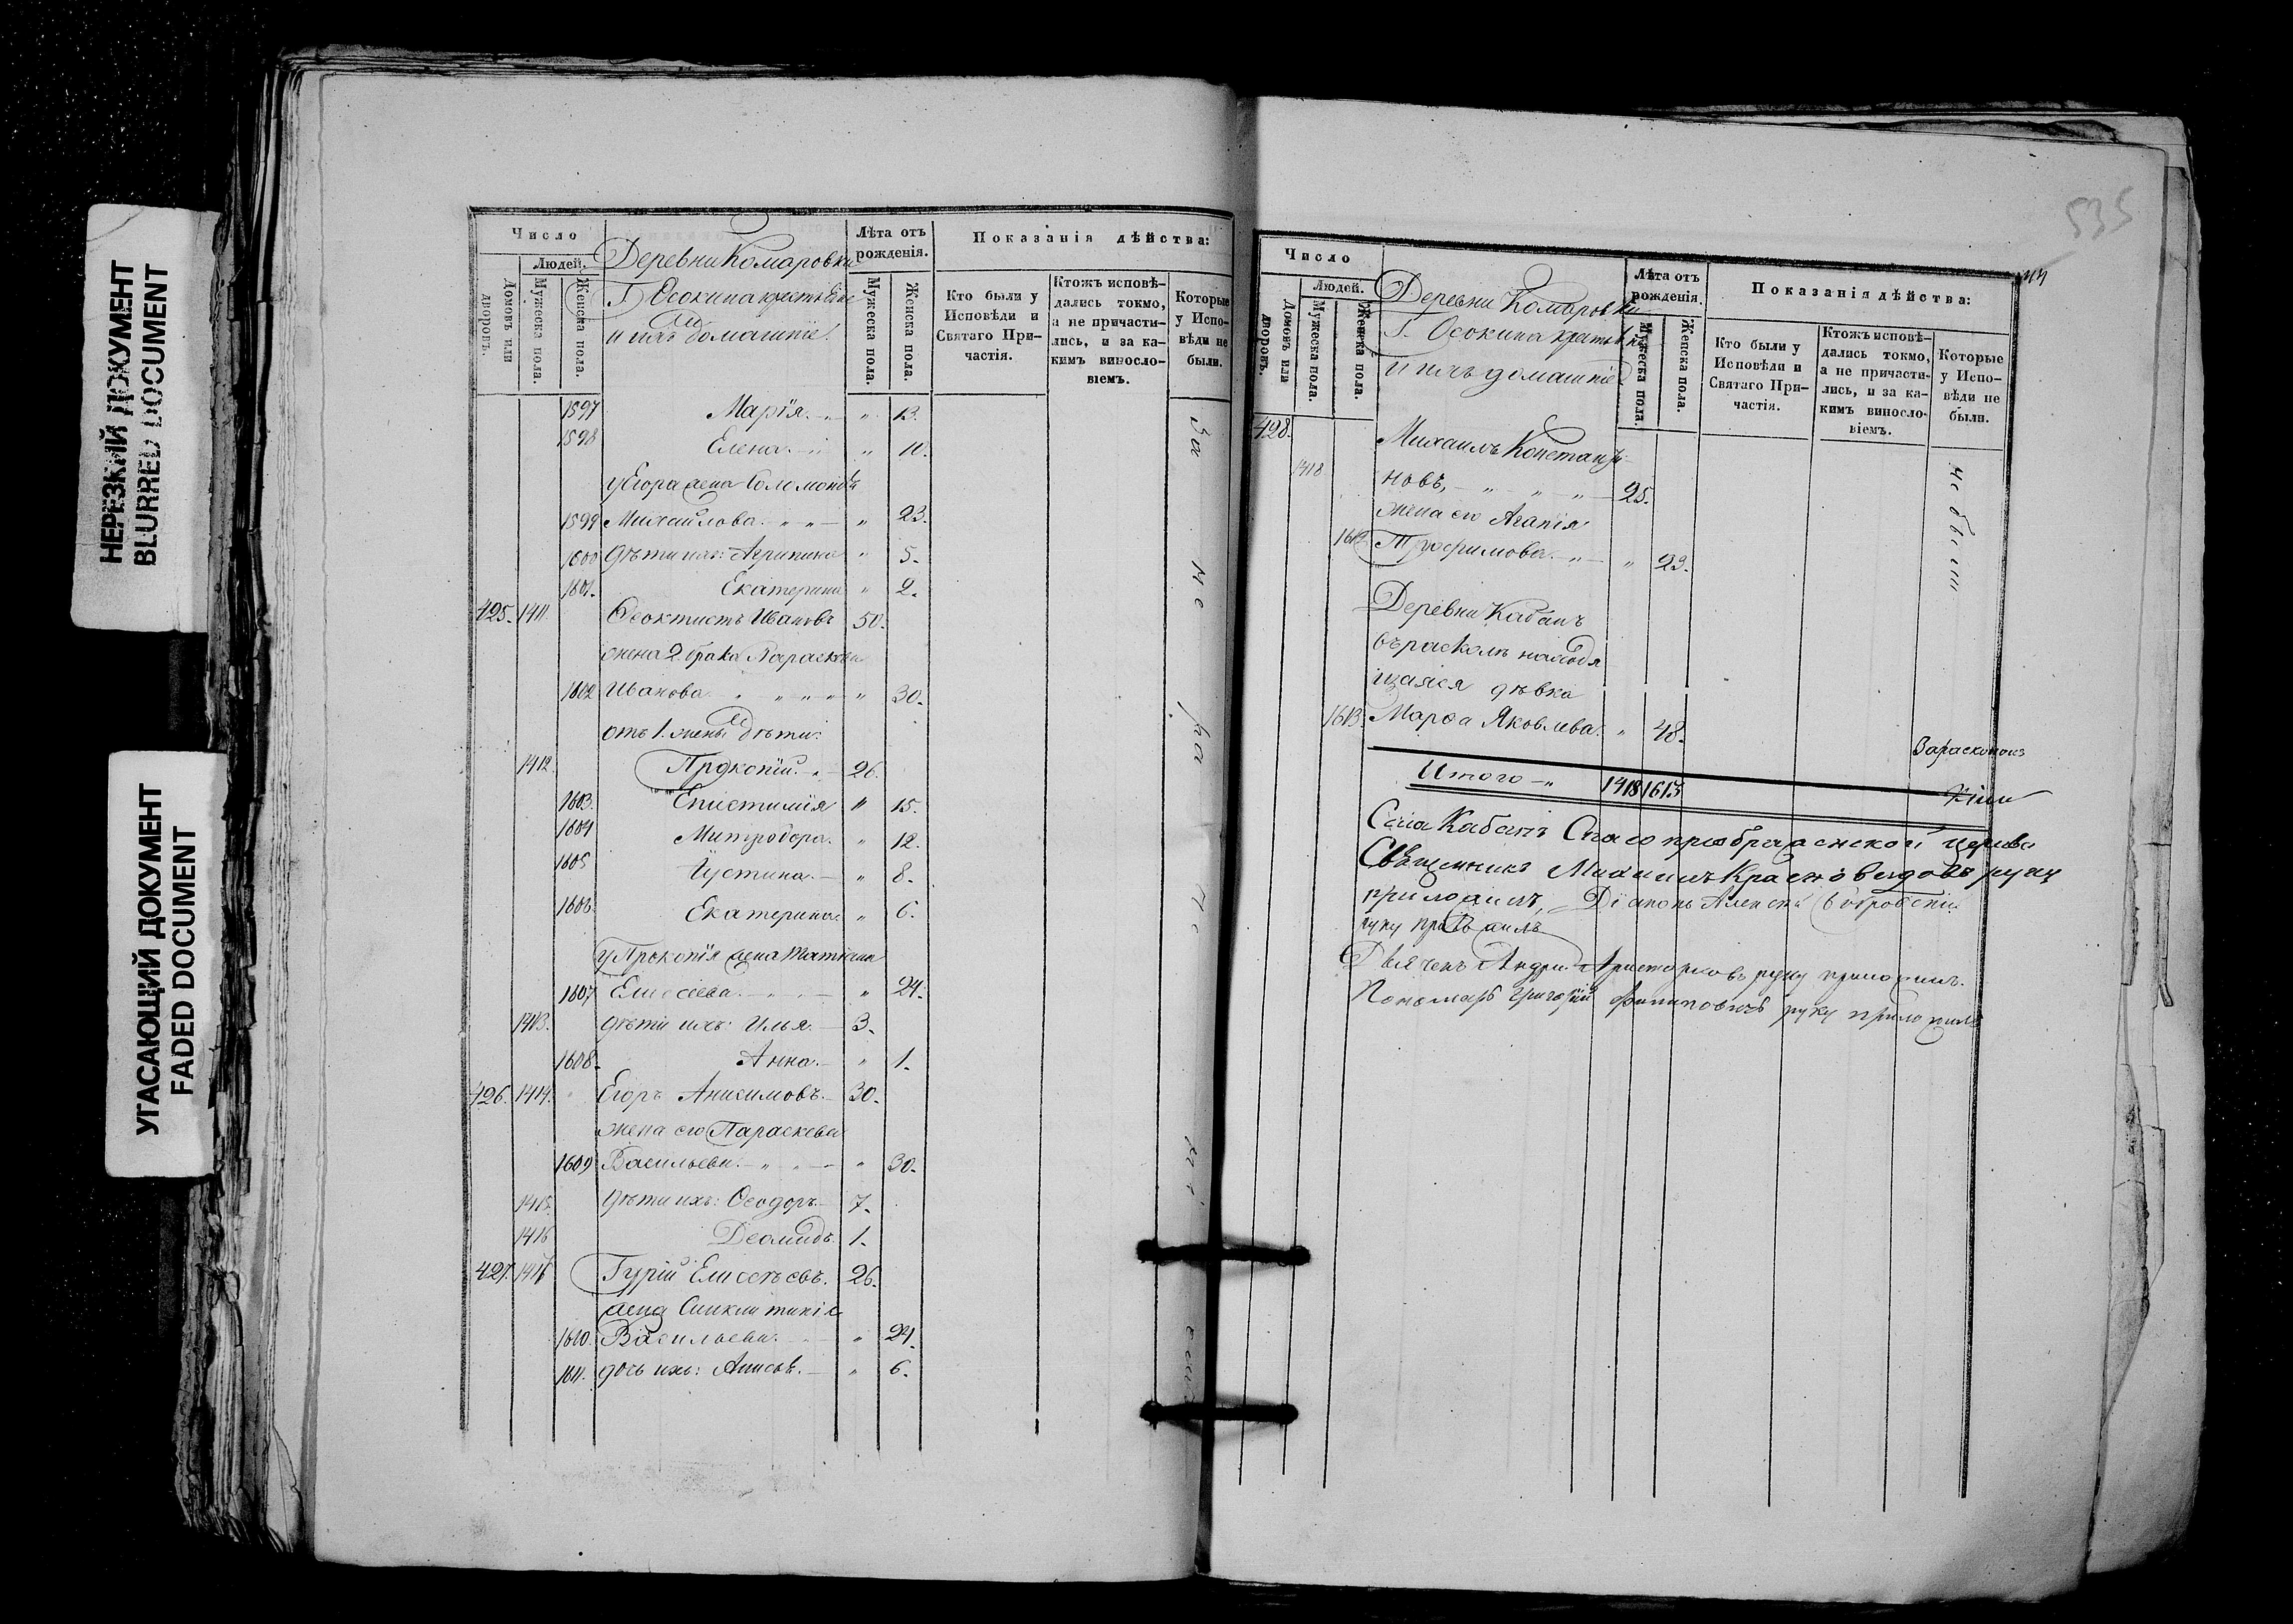 НЕРЕЗКИЙ ДОКУМЕНТ
BLURRED DOCUMENT
УГАСАЮЩИЙ ДОКУМЕНТ
FADED DOCUMENT
Число
Людей.
Домовъ или дворовъ.
Мужеска пола.
Женска пола.
Деревни Комаровки
Г. Осокина крестьяне
и ихъ домашніе
Лѣта отъ рожденія.
Мужеска пола.
Женска пола.
Показанія дѣйства:
Кто были у Исповѣди и Святаго Причастія.
Ктожъ исповѣдались токмо, а не причастились, и за какимъ винословіемъ.
Которые у Исповѣди не были.
1597 Марія. " 13.
1598 Елена. " 10.
у Егора жена Соломонія
1599 Михайлова. " 23.
1600 дѣти ихъ: Агрипина " 5.
1601. Екатерина " 2.
425. 1411 Ѳеоктистъ Ивановъ 50.
жена 2 брака Параскева
1602 Иванова " 30.
отъ 1. жены дѣти:
1412 Прокопій 26.
1603. Епистимія " 15.
1604 Митродора. " 12.
1605 Іустина. " 8.
1606. Екатерина " 6.
у Прокопія жена Татіана
1607 Елисеева. " 24.
1413. дѣти ихъ: Илья. 3.
1608. Анна. " 1.
426. 1414. Егоръ Анисимовъ. 30.
жена его Параскева
1609 Васильева. " 30.
1415. дѣти ихъ: Ѳеодоръ. 7.
1416 Деомидъ. 1.
427. 1417 Гурій Елисѣевъ. 26.
жена Синклитикія
1610. Васильева. " 24.
1611. дочь ихъ: Анисья. " 6.
За не
535
Число
Людей.
Домовъ или дворовъ.
Мужеска пола.
Женска пола.
Деревни Комаровки
Г. Осокина крестьяне
и ихъ домашніе
Лѣта отъ рожденія.
Мужеска пола.
Женска пола.
Показанія дѣйства:
Кто были у Исповѣди и Святаго Причастія.
Ктожъ исповѣдались токмо, а не причастились, и за какимъ винословіемъ.
Которые у Исповѣди не были.
428.
Михаилъ Константи-
1418 новъ, " " " 25.
жена его Агапія
1612 Трофимова. " 23.
не были
Деревни Кабанъ
въ расколѣ находя
щаяся дѣвка
1613. Марѳа Яковлева. " 48.
За расколомъ
Итого " 1418 1613
Села Кабанъ Спасопреображенской церкви
Священникъ Михаилъ руку
приложилъ, Діаконъ Алексѣй
руку приложилъ
Дьячекъ Андрей Аристарховъ руку приложилъ.
Пономарь Григорій Филиповичъ руку приложилъ